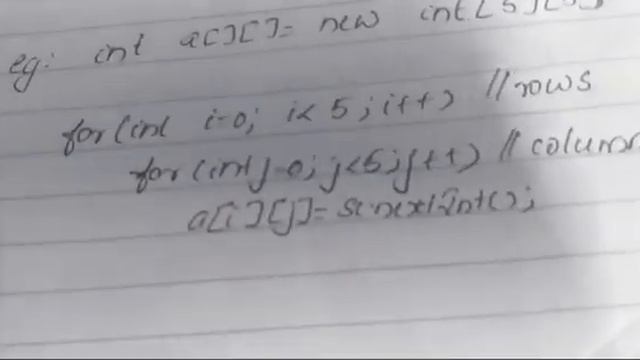 eg: int a[][]= new int[5][5]
for(int i=0; i<5; i++) //rows
for(int j=0; j<5; j++) // column
a[i][j]= sc.nextInt();